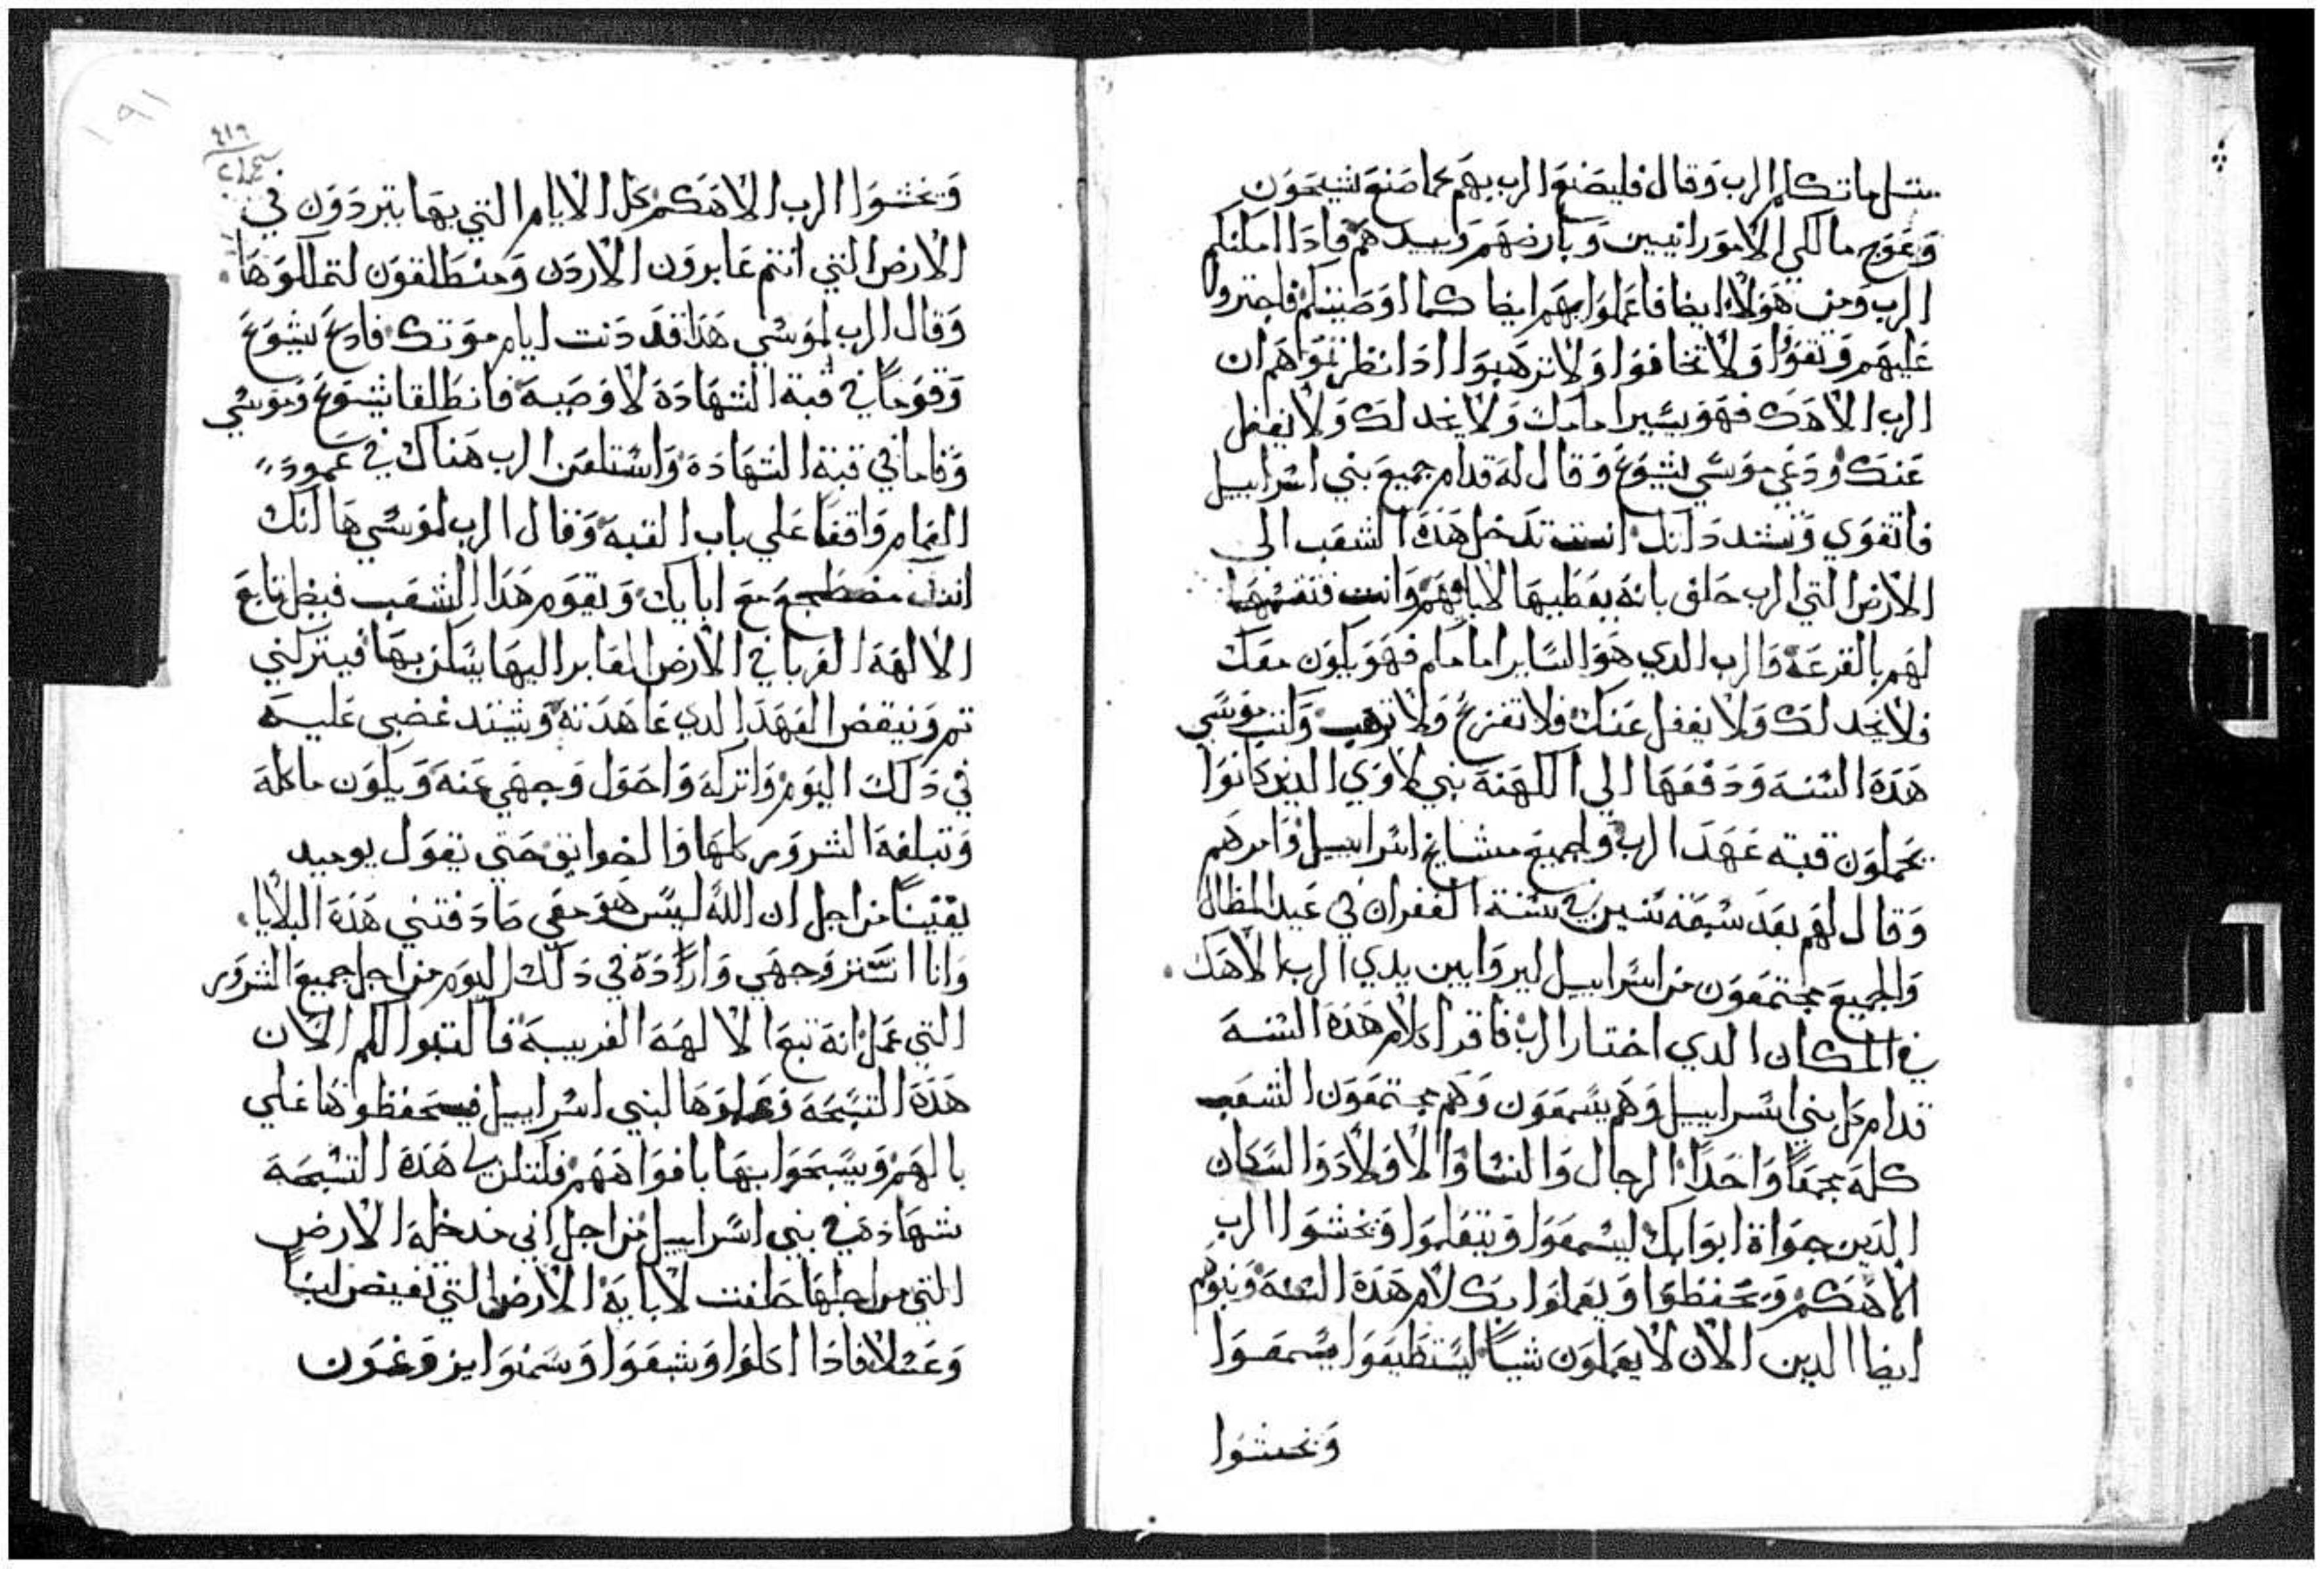 مثل ما تكلم الرب وقال فليصنع الرب بهم كما صنع بشيحون
وعوج مالكي الامورانيين وبارضهم ويبيدهم فادا امكنكم
الرب ومن هولاء ايضا فاعملوا بهم ايضا كما اوصيتكم فاجتروا
عليهم وتقووا ولا تخافوا ولا ترهبوا ادا نظرتموا هم ان
الرب الاهك فهو يسير امامك ولا يخدلك ولا يغفل
عنك ودعي موسي يشوع وقال له قدام جميع بني اسراييل
فاتقوي وتشدد لانك انت تدخل هذه الشعب الى
الارض التي الرب حلف بانه يعطيها لابايهم وانت فتقسمها
لهم بالقرعه فالرب الدي هو الساير امامكم فهو يكون معك
فلا يخدلك ولا يغفل عنك فلا تفزع ولا ترهب وكتب موسي
هذه السنه ودفعها الي الكهنة بني لاوي الدين كانوا
يحملون قبة عهد الرب ولجميع مشايخ اسراييل وامرهم
وقال لهم بعد سبعة سنين في سنة الغفران في عيد المظال
والجميع مجتمعون من اسراييل ليروا بين يدي الرب الاهك
في المكان الدي اختار الرب فاقرا كلام هذه السنة
قدام كل بني اسراييل وهم يسمعون وهم مجتمعون الشعب
كله مجمعا واحدا الرجال والنسا والاولاد والسكان
الدين جواة ابوابك ليسمعوا ويتعلموا وتخشوا الرب
الاهكم وتحفظوا ويعملوا بكلام هذه السنة وبنوهم
ايضا الدين الان لا يعملون شيا ليستطيعوا يسمعوا
وتخشوا
١٩١
وتخشوا الرب الاهكم كل الايام التي بها يترددون في
الارض التي انتم عابرون الاردن ومنطلقون لتملكوها
وقال الرب لموسي هذا قد دنت ايام موتك فادع يشوع
وقوما في قبة الشهادة لاوصيه فانطلقا يشوع وموسي
وقاما في قبة الشهادة واستلعن الرب هناك في عمود
الغمام واقفا علي باب القبة وقال الرب لموسي ها انك
انت مضطجع مع ابايك ويقوم هذا الشعب فيضل تابع
الالهة الغربا في الارض العابر اليها يسكن بها فيتركني
ثم وينقض العهد الدي عاهدته ويشتد غضبي عليه
في دلك اليوم واتركه واحول وجهي عنه ويكون ماكله
وتبلغه الشرور كلها والضوايق حتي يقول يوميد
يقينا من اجل ان الله ليس هو معي صادفتني هذه البلايا
وانا استر وجهي وارادة في دلك اليوم من اجل جميع الشرور
التي عمل انه تبع الالهة الغريبة فاكتبوا لكم الان
هذه التسبحة وعلموها لبني اسراييل فيحفظوها علي
بالهم ويسبحوا بها بافواههم فلتكن لي هذه التسبحة
شهادة في بني اسراييل من اجل اني مدخلهم الارض
التي من اجلها حلفت لابايه الارض التي تفيض لبنا
وعسلا فادا اكلوا وشبعوا وسمنوا يزوغون